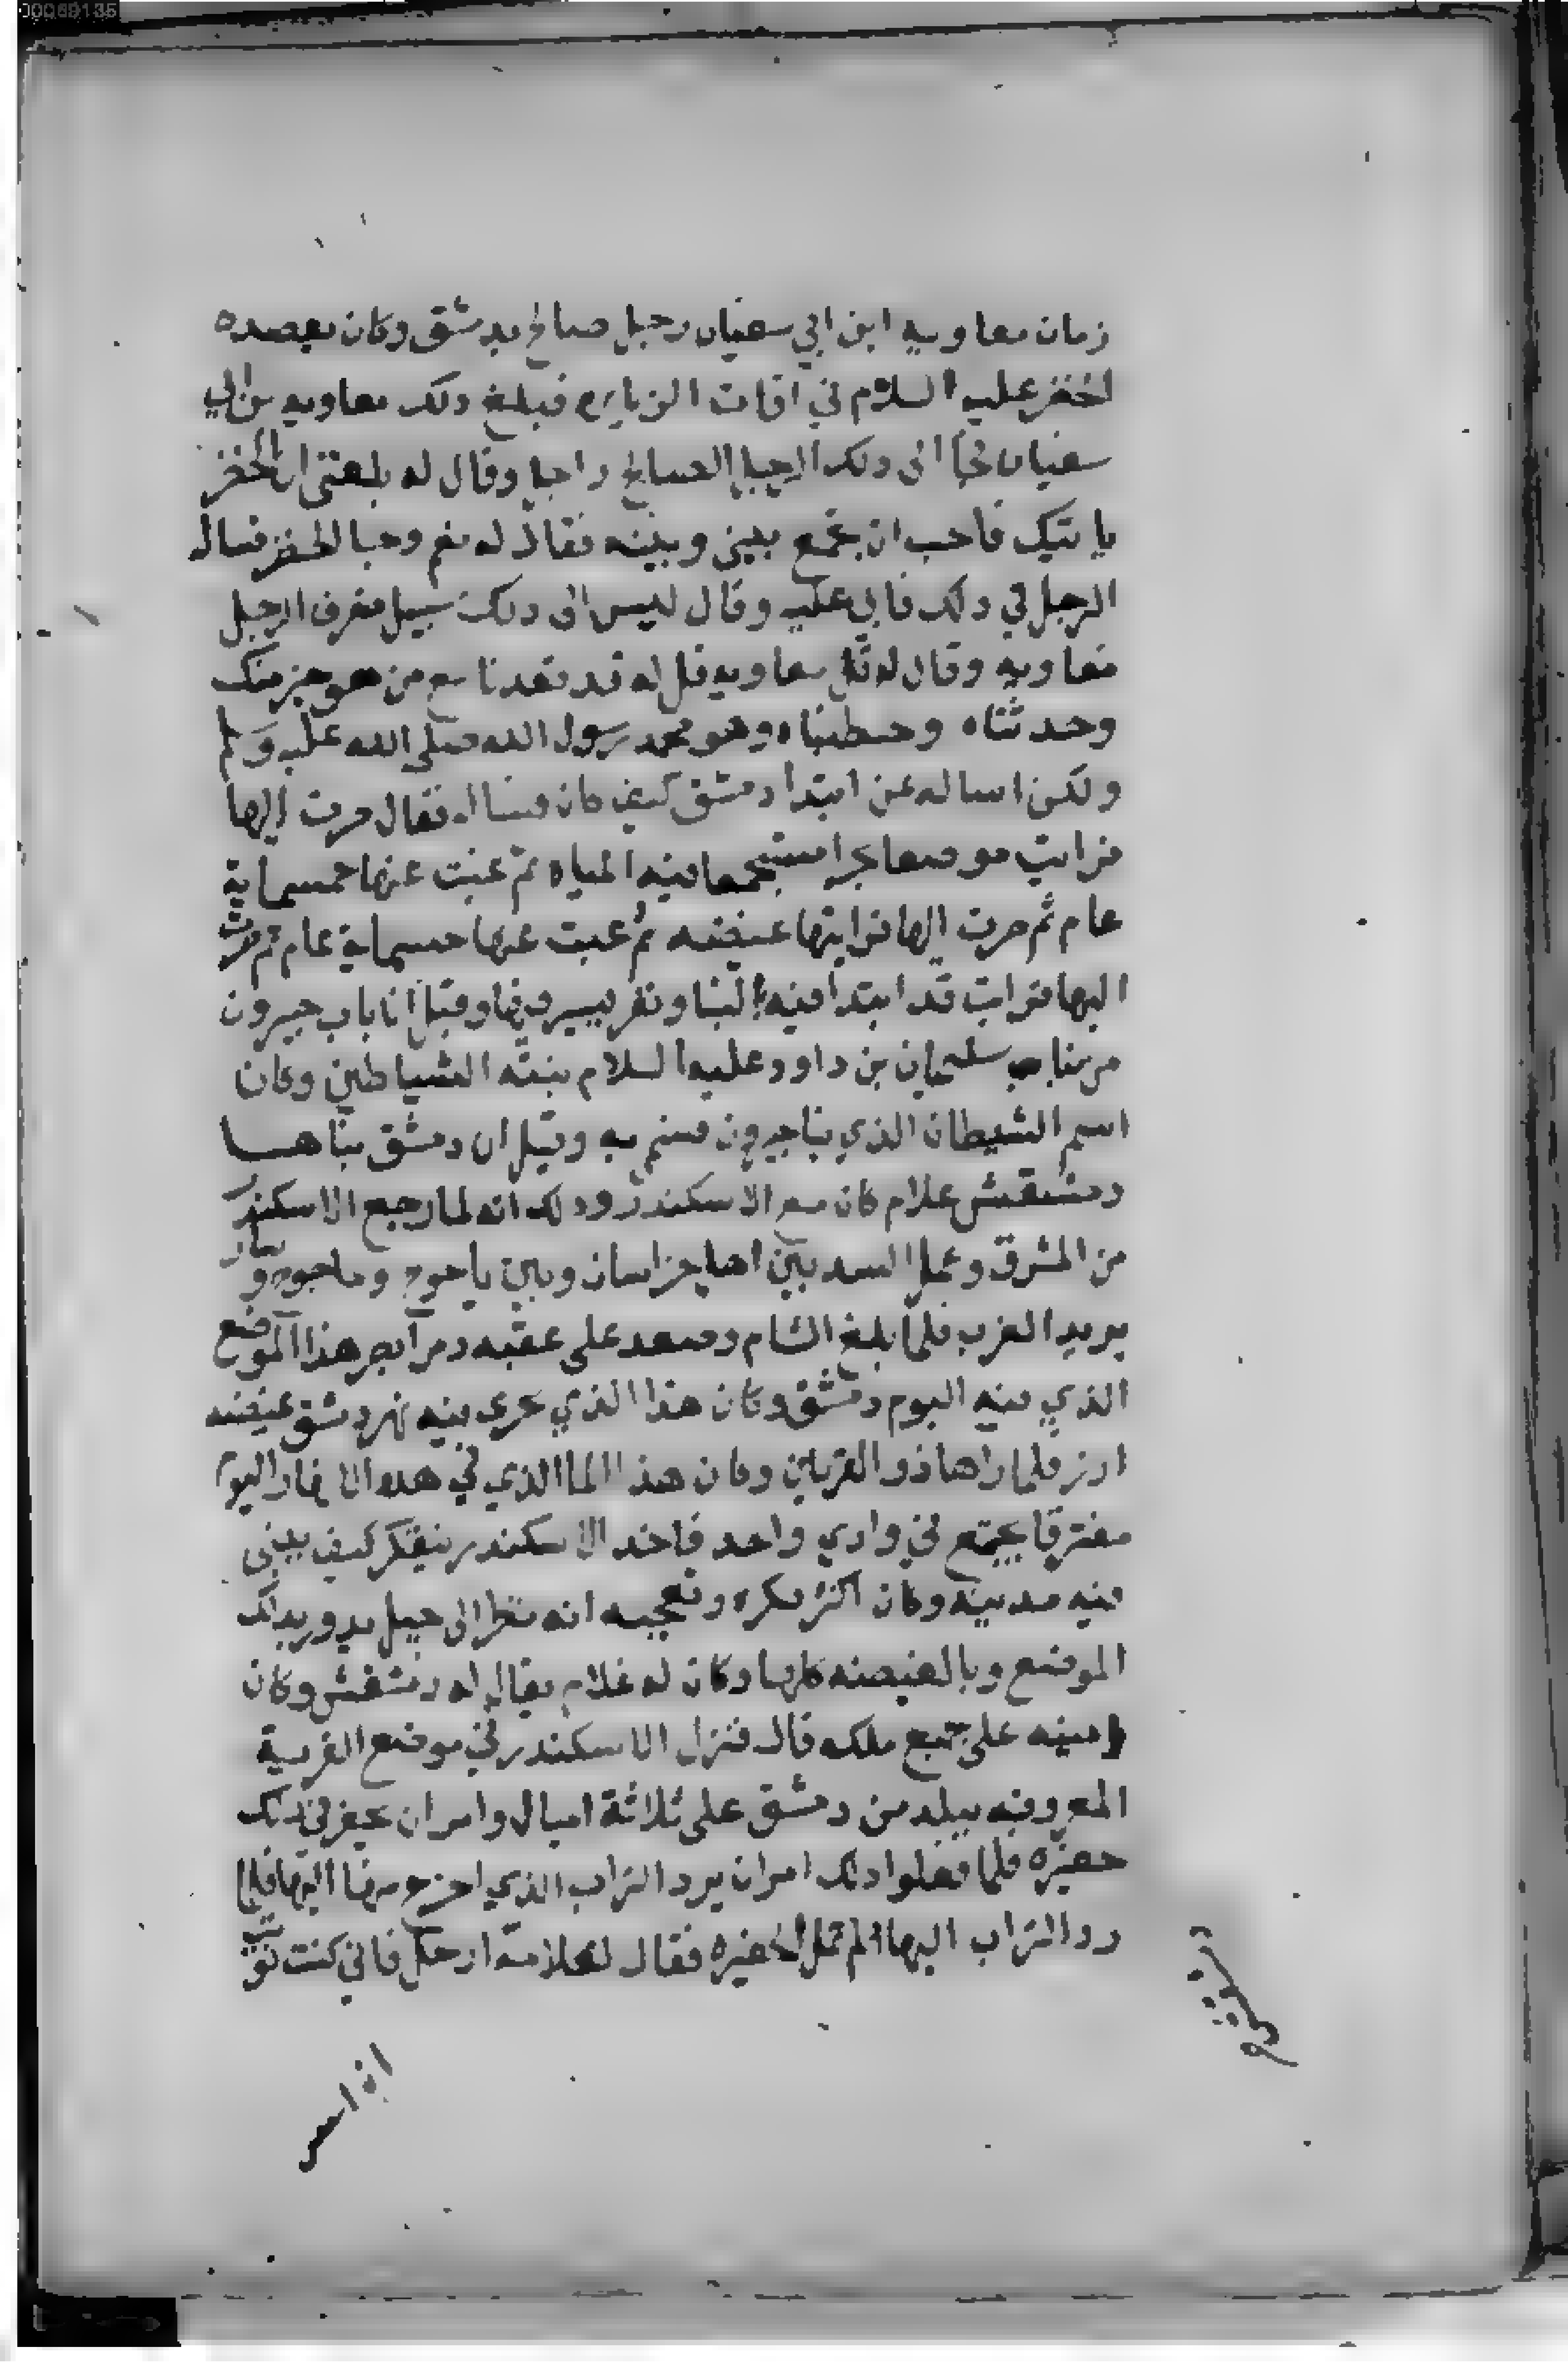 زمان معاويه ابن ابي سفيان رجل صالح بدمشق وكان يقصده
الخضر عليه السلام في اوقات الزياره فبلغ ذلك معاويه بن ابي
سفيان فجا الى ذلك الرجل الصالح راجلا وقال له بلغني ان الخضر
ياتيك فاحب ان تجمع بيني وبينه فقال له نعم وجا الخضر فساله
الرجل في ذلك فابى عليه وقال ليس الى ذلك سبيل فعرف الرجل
معاويه وقال له معاويه قل له قد قعدنا مع من هو خير منك
وحدثناه وخطبناه وهو محمد رسول الله صلى الله عليه وسلم
ولكن اساله عن ابتدا دمشق كيف كان فساله فقال صرت اليها
فرايت موضعها بحرا مستجمعا فيه المياه ثم غبت عنها خمسمايه
عام ثم صرت اليها فرايتها غيضه ثم غبت عنها خمسمايه عام ثم صرت
اليها فرايت قد ابتدا فيه البنا ونفر يسير فيها وقيل ان باب جيرون
من بنا سليمان بن داود عليه السلام بنته الشياطين وكان
اسم الشيطان الذي بناه جيرون فسمي به وقيل ان دمشق بناها
دمشقش غلام كان مع الاسكندر وذلك انه لما رجع الاسكندر
من المشرق وعمل السد بين اهل خراسان وبين ياجوج وماجوج وسار
يريد الغرب فلما بلغ الشام وصعد على عقبه دمر ابصر هذا الموضع
الذي فيه اليوم دمشق وكان هذا الذي يجري فيه نهر دمشق غيضه
ارز فلما راها ذو القرنين وكان هذا الما الذي في هذه الانهار اليوم
مفترقا يجتمع في وادي واحد فاخذ الاسكندر يتفكر كيف يبني
فيه مدينه وكان اكثر فكره وتعجبه انه نظر الى جبل يدور بذلك
الموضع وبالغيضه كلها وكان له غلام يقال له دمشقش وكان
امينه على جميع ملكه قال فنزل الاسكندر في موضع القرية
المعروفه بيلد من دمشق على ثلاثة اميال وامر ان يحفر في ذلك
حفيره فلما فعلوا ذلك امر ان يرد التراب الذي اخرج منها اليها فلما
رد التراب اليها لم تمل الحفيره فقال لغلامه ارحل فاني كنت نويت
ان اسس